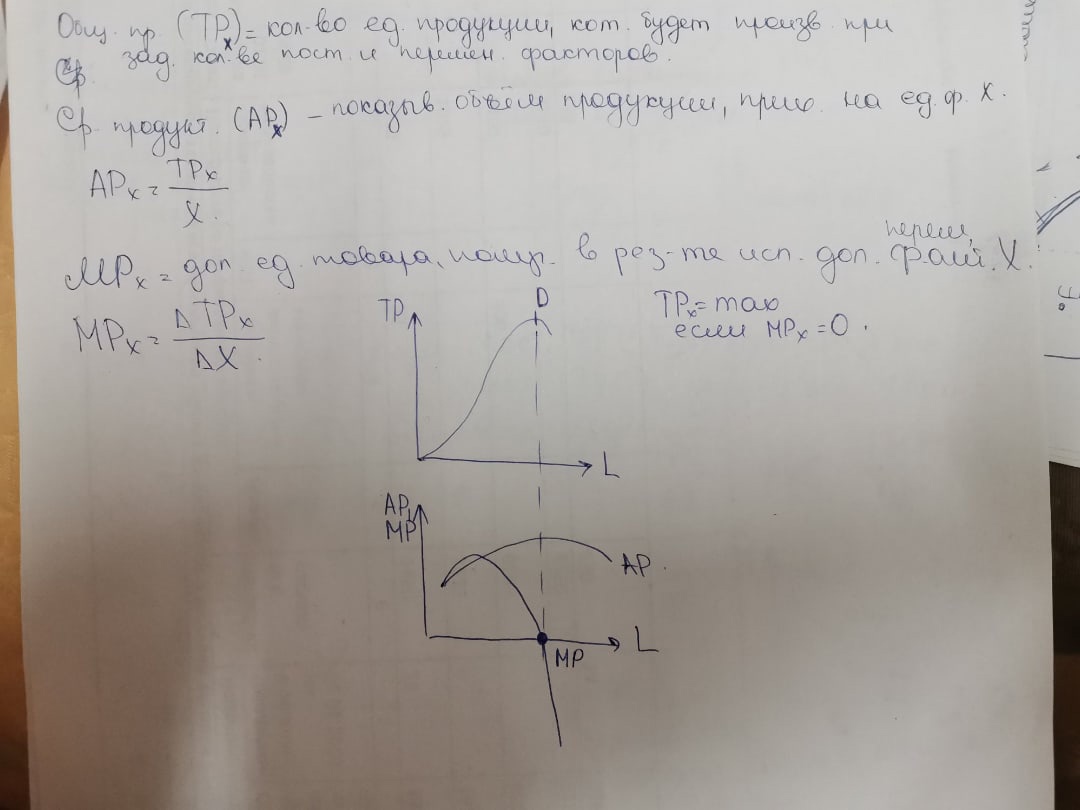 Общ. пр. (TPx) = кол-во ед. продукции, кот. будет произв. при
зад. кол-ве пост. и перемен. факторов.
Ср. продукт. (APx) – показыв. объём продукции, прих. на ед. ф. X.
APx = TPx / X.
перем.
MPx = доп. ед. товара, получ. в рез-те исп. доп. X.
MPx = ΔTPx / ΔX.
TPx = max
если MPx = 0.
TP
D
L
AP,
MP
AP.
L
MP